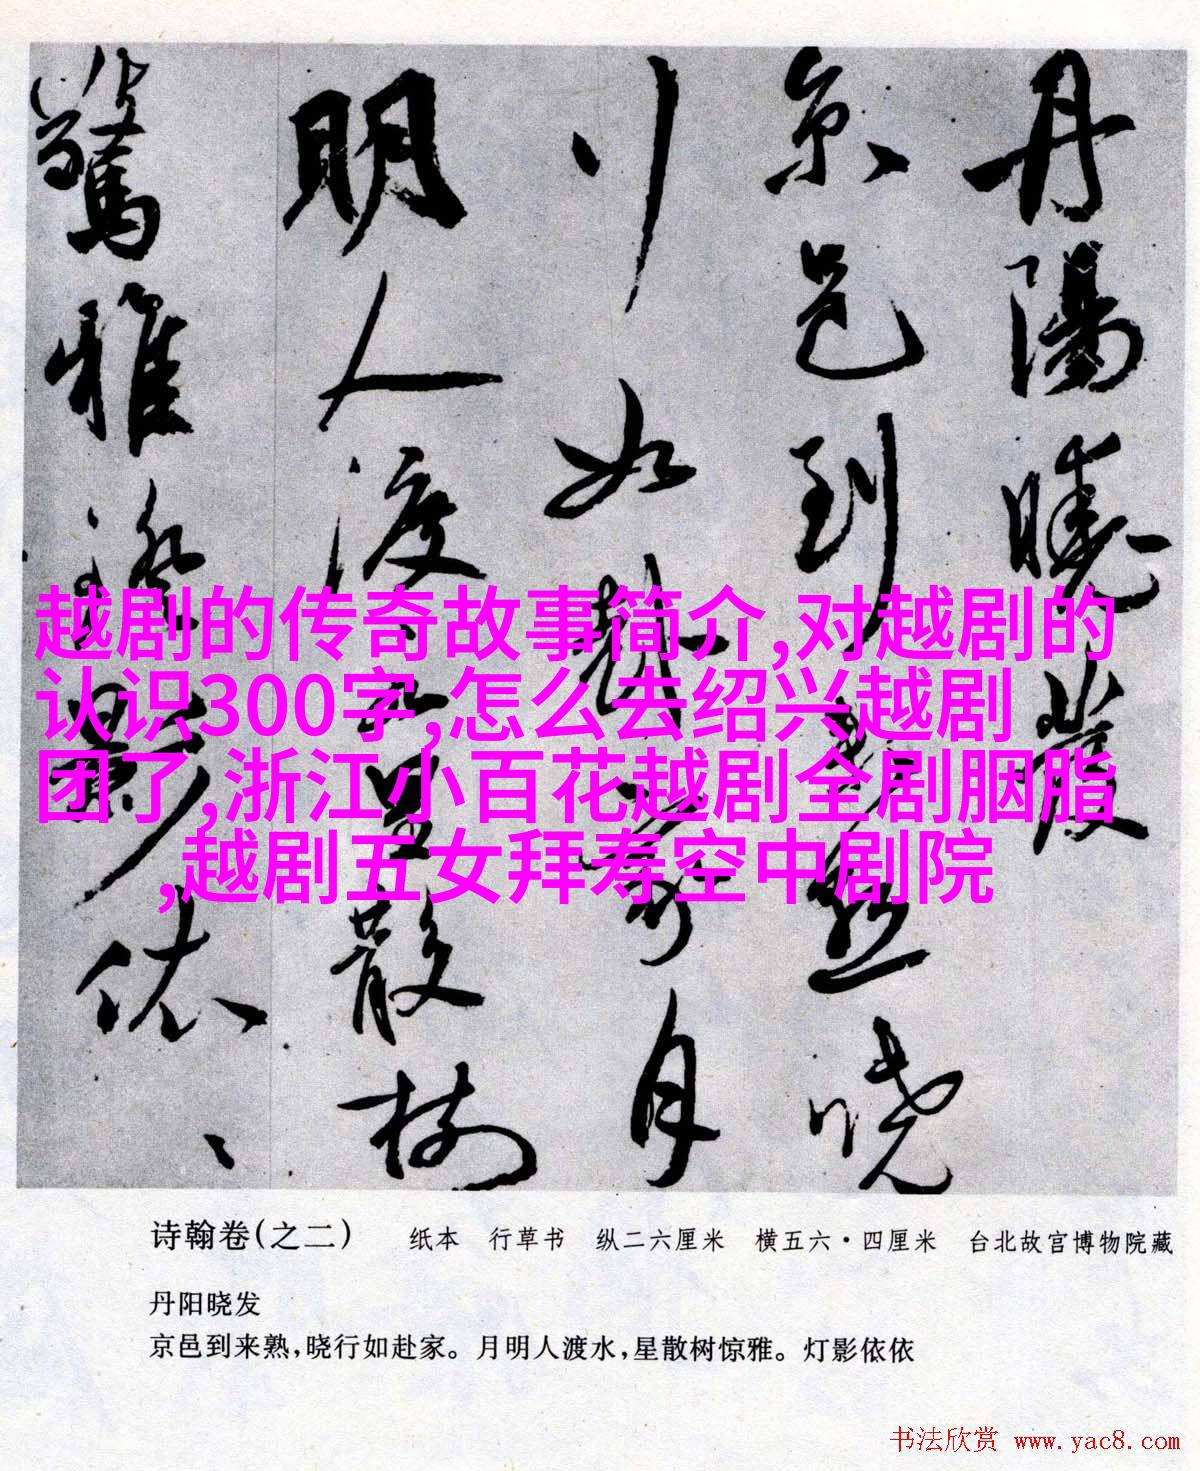 丹陽曉發
京邑到來熟曉
行如赴家月
明人渡水星散樹
驚雅燈影依、、
越剧的传奇故事简介,对越剧的
认识300字,怎么去绍兴越剧
团了,浙江小百花越剧全剧胭脂
,越剧五女拜寿空中剧院
诗翰卷(之二) 纸本 行草书 纵二六厘米 横五六·四厘米 台北故宫博物院藏
丹阳晓发
京邑到来熟,晓行如赴家。月明人渡水,星散树惊雅。灯影依依
书法欣赏 www.yac8.com